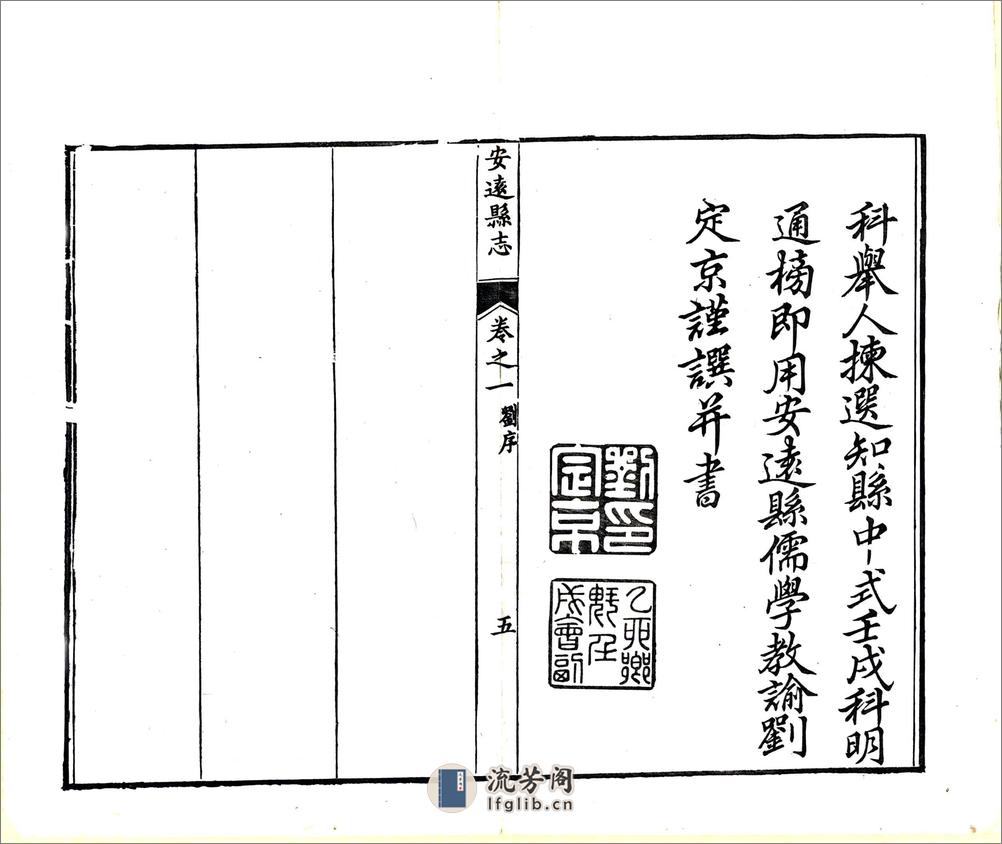 科舉人揀選知縣中式壬戌科明
通榜即用安遠縣儒學教諭劉
定京謹譔并書
劉印
定京
乙卯鄉
壬戌會副
安遠縣志
卷之一
劉序
五
流芳阁
lfglib.cn